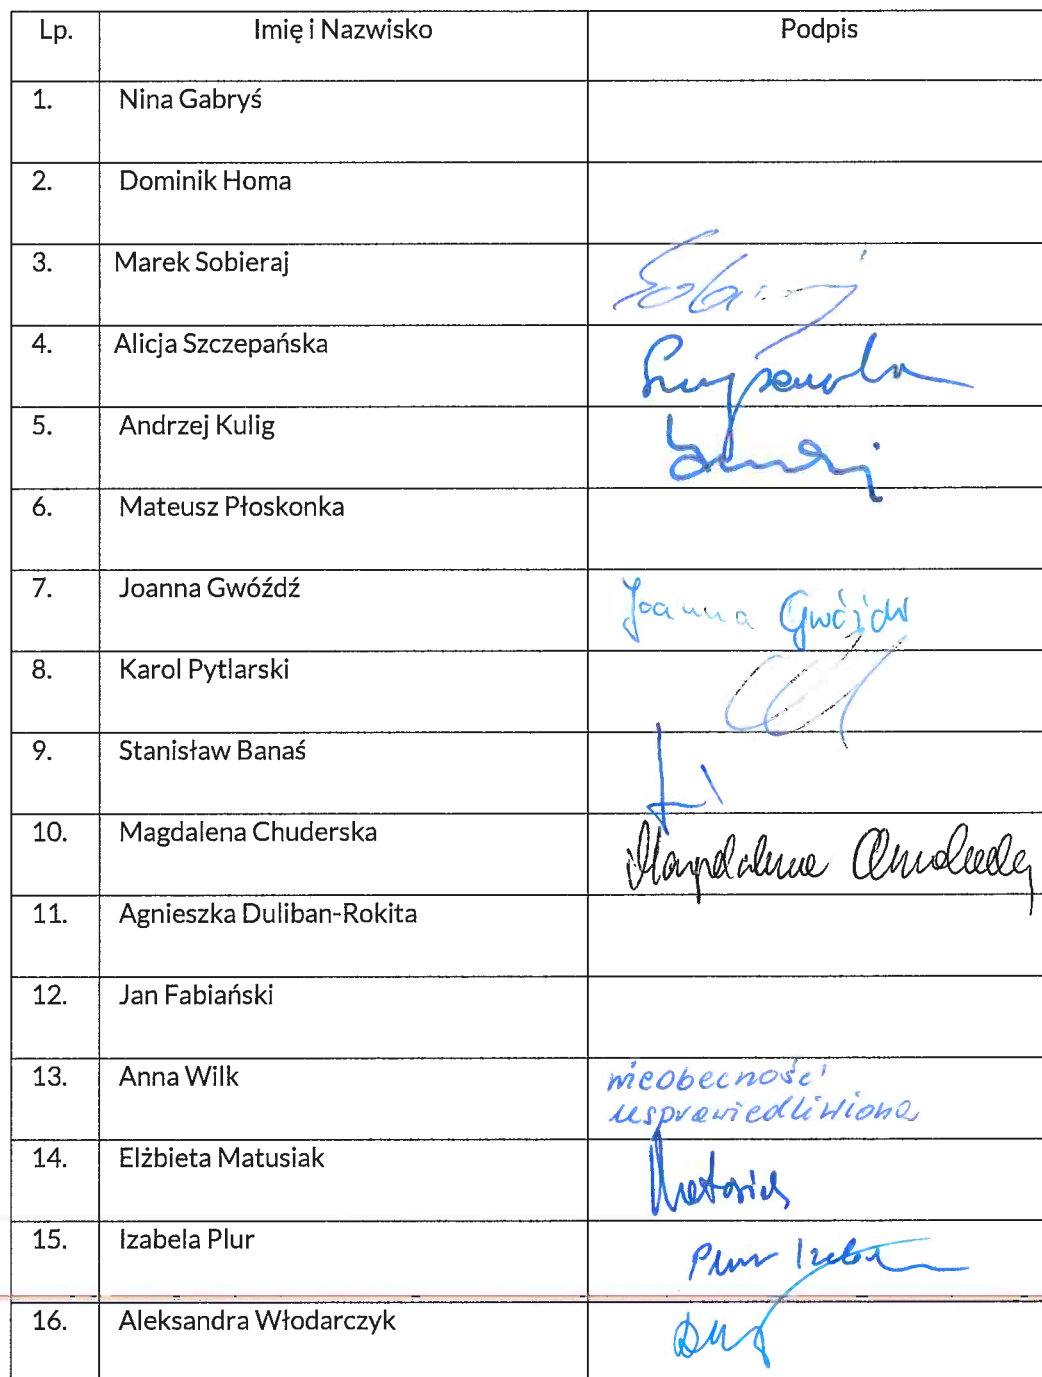 Lp. Imię i Nazwisko Podpis
1. Nina Gabryś
2. Dominik Homa
3. Marek Sobieraj
4. Alicja Szczepańska
5. Andrzej Kulig
6. Mateusz Płoskonka
7. Joanna Gwóźdź Joanna Gwóźdź
8. Karol Pytlarski
9. Stanisław Banaś
10. Magdalena Chuderska Magdalena
11. Agnieszka Duliban-Rokita
12. Jan Fabiański
13. Anna Wilk nieobecność
usprawiedliwiona
14. Elżbieta Matusiak
15. Izabela Plur Plur
16. Aleksandra Włodarczyk